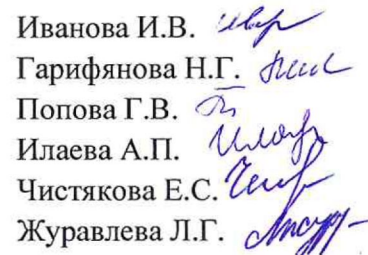 Иванова И.В.
Гарифянова Н.Г.
Попова Г.В.
Илаева А.П.
Чистякова Е.С.
Журавлева Л.Г.